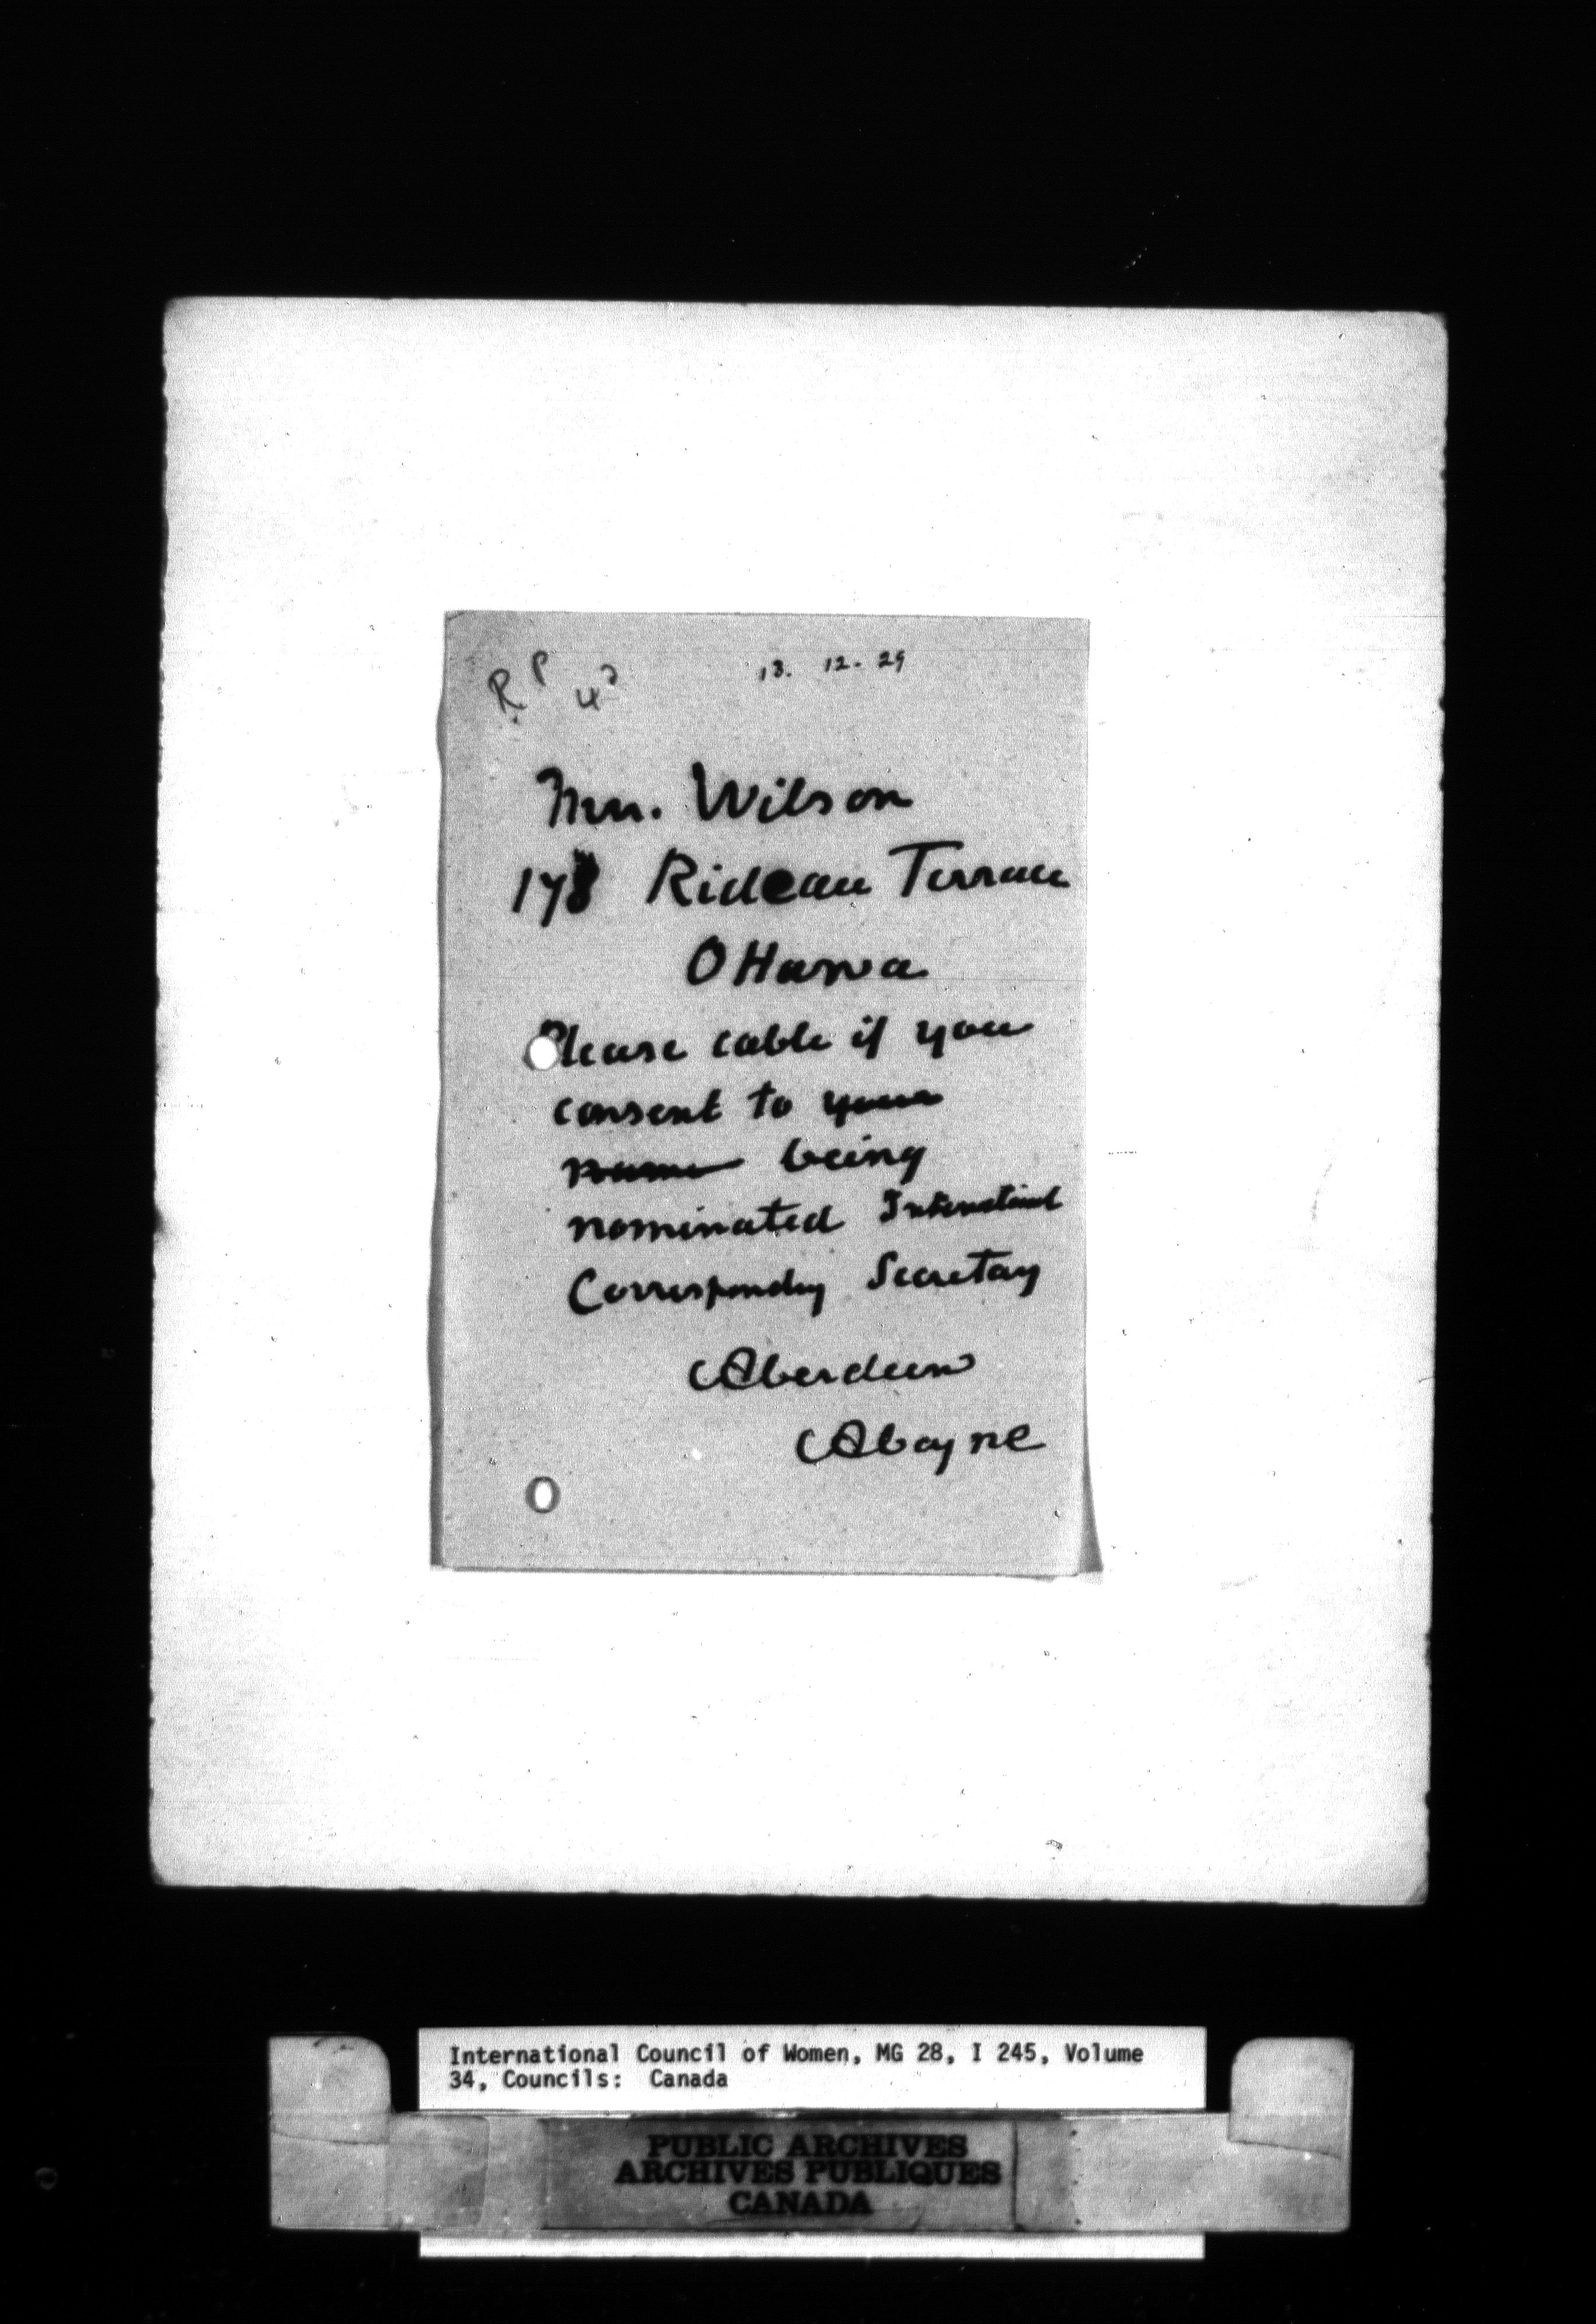 R P 4/
13. 12. 29
Mrs. Wilson
178 Rideau Terrace
Ottawa
Please cable if you
consent to your
name being
nominated International
Correspondg Secretary
Aberdeen
Aboyne
International Council of Women, MG 28, I 245, Volume
34, Councils: Canada
PUBLIC ARCHIVES
ARCHIVES PUBLIQUES
CANADA